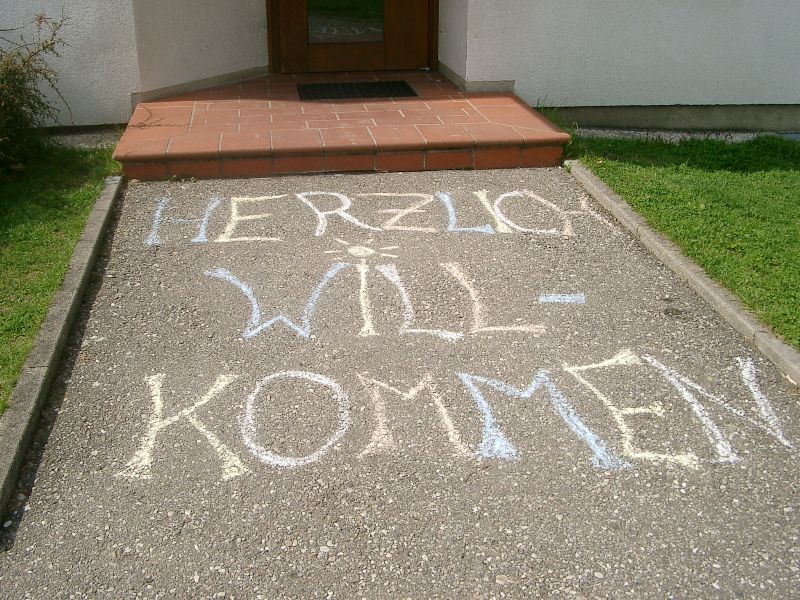 HERZLICH
WILL-
KOMMEN